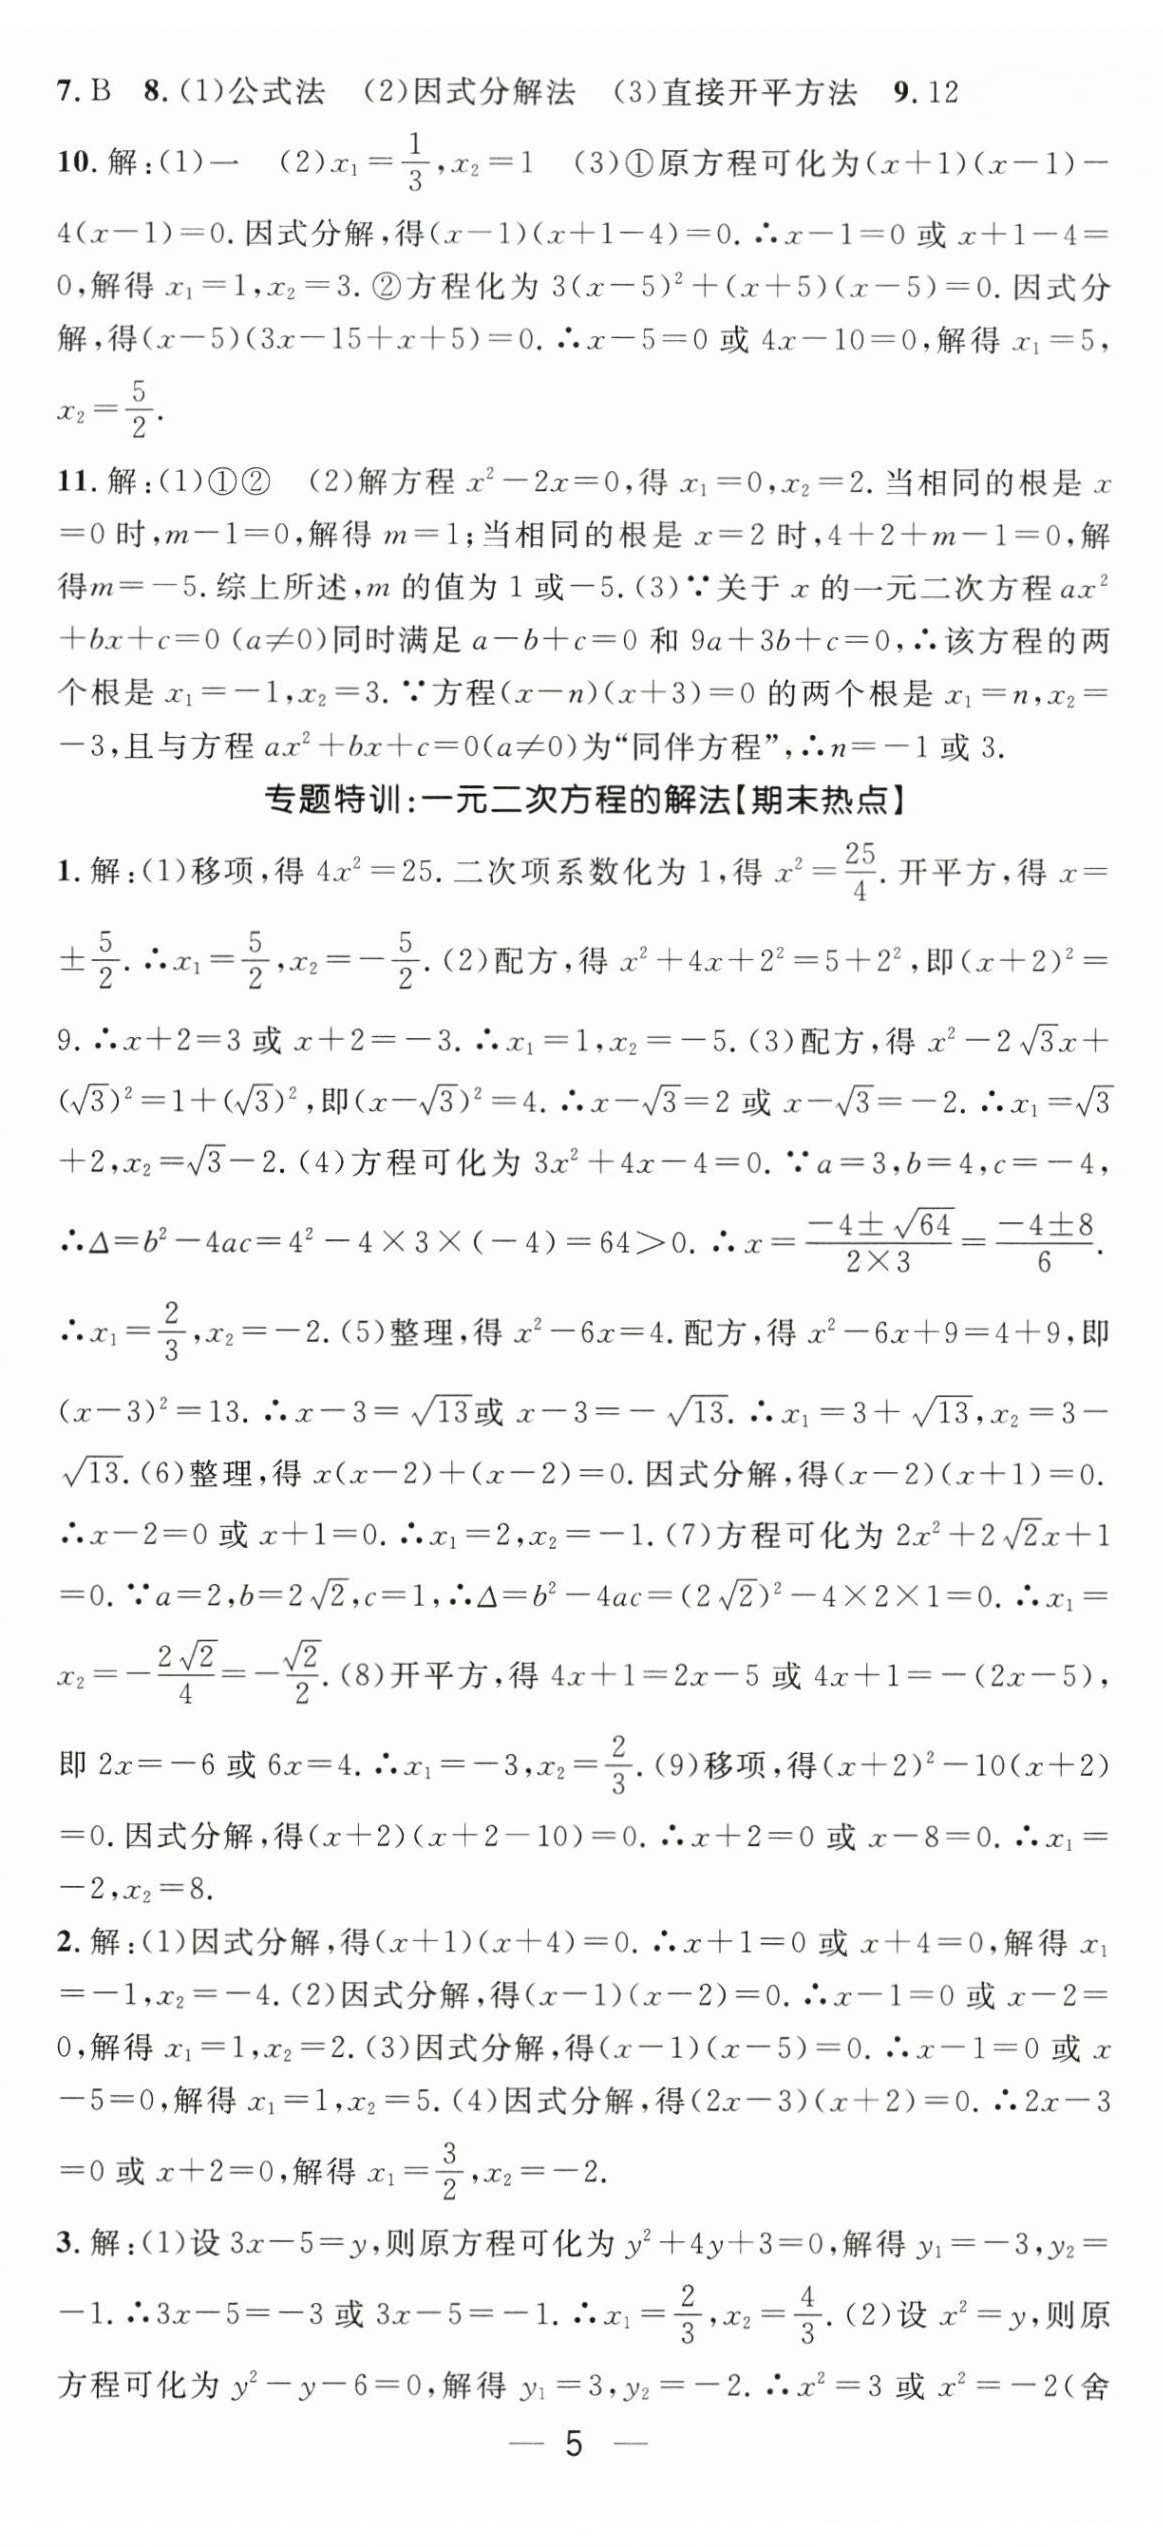 7. B  8. (1)公式法  (2)因式分解法  (3)直接开平方法  9. 12
10. 解:(1)一  (2)x₁=1/3,x₂=1  (3)①原方程可化为(x+1)(x-1)-
4(x-1)=0. 因式分解,得(x-1)(x+1-4)=0. ∴x-1=0 或 x+1-4=
0,解得 x₁=1,x₂=3. ②方程化为 3(x-5)²+(x+5)(x-5)=0. 因式分
解,得(x-5)(3x-15+x+5)=0. ∴x-5=0 或 4x-10=0,解得 x₁=5,
x₂=5/2.
11. 解:(1)①②  (2)解方程 x²-2x=0,得 x₁=0,x₂=2. 当相同的根是 x
=0 时,m-1=0,解得 m=1;当相同的根是 x=2 时,4+2+m-1=0,解
得m=-5. 综上所述,m 的值为 1 或-5. (3)∵关于 x 的一元二次方程 ax²
+bx+c=0 (a≠0)同时满足 a-b+c=0 和 9a+3b+c=0,∴该方程的两
个根是 x₁=-1,x₂=3. ∵方程(x-n)(x+3)=0 的两个根是 x₁=n,x₂=
-3,且与方程 ax²+bx+c=0(a≠0)为“同伴方程”,∴n=-1 或 3.
专题特训:一元二次方程的解法【期末热点】
1. 解:(1)移项,得 4x²=25. 二次项系数化为 1,得 x²=25/4. 开平方,得 x=
±5/2. ∴x₁=5/2,x₂=-5/2. (2)配方,得 x²+4x+2²=5+2²,即(x+2)²=
9. ∴x+2=3 或 x+2=-3. ∴x₁=1,x₂=-5. (3)配方,得 x²-2√3x+
(√3)²=1+(√3)²,即(x-√3)²=4. ∴x-√3=2 或 x-√3=-2. ∴x₁=√3
+2,x₂=√3-2. (4)方程可化为 3x²+4x-4=0. ∵a=3,b=4,c=-4,
∴Δ=b²-4ac=4²-4×3×(-4)=64>0. ∴x=(-4±√64)/(2×3)=(-4±8)/6.
∴x₁=2/3,x₂=-2. (5)整理,得 x²-6x=4. 配方,得 x²-6x+9=4+9,即
(x-3)²=13. ∴x-3=√13或 x-3=-√13. ∴x₁=3+√13,x₂=3-
√13. (6)整理,得 x(x-2)+(x-2)=0. 因式分解,得(x-2)(x+1)=0.
∴x-2=0 或 x+1=0. ∴x₁=2,x₂=-1. (7)方程可化为 2x²+2√2x+1
=0. ∵a=2,b=2√2,c=1,∴Δ=b²-4ac=(2√2)²-4×2×1=0. ∴x₁=
x₂=-2√2/4=-√2/2. (8)开平方,得 4x+1=2x-5 或 4x+1=-(2x-5),
即 2x=-6 或 6x=4. ∴x₁=-3,x₂=2/3. (9)移项,得(x+2)²-10(x+2)
=0. 因式分解,得(x+2)(x+2-10)=0. ∴x+2=0 或 x-8=0. ∴x₁=
-2,x₂=8.
2. 解:(1)因式分解,得(x+1)(x+4)=0. ∴x+1=0 或 x+4=0,解得 x₁
=-1,x₂=-4. (2)因式分解,得(x-1)(x-2)=0. ∴x-1=0 或 x-2=
0,解得 x₁=1,x₂=2. (3)因式分解,得(x-1)(x-5)=0. ∴x-1=0 或 x
-5=0,解得 x₁=1,x₂=5. (4)因式分解,得(2x-3)(x+2)=0. ∴2x-3
=0 或 x+2=0,解得 x₁=3/2,x₂=-2.
3. 解:(1)设 3x-5=y,则原方程可化为 y²+4y+3=0,解得 y₁=-3,y₂=
-1. ∴3x-5=-3 或 3x-5=-1. ∴x₁=2/3,x₂=4/3. (2)设 x²=y,则原
方程可化为 y²-y-6=0,解得 y₁=3,y₂=-2. ∴x²=3 或 x²=-2(舍
— 5 —